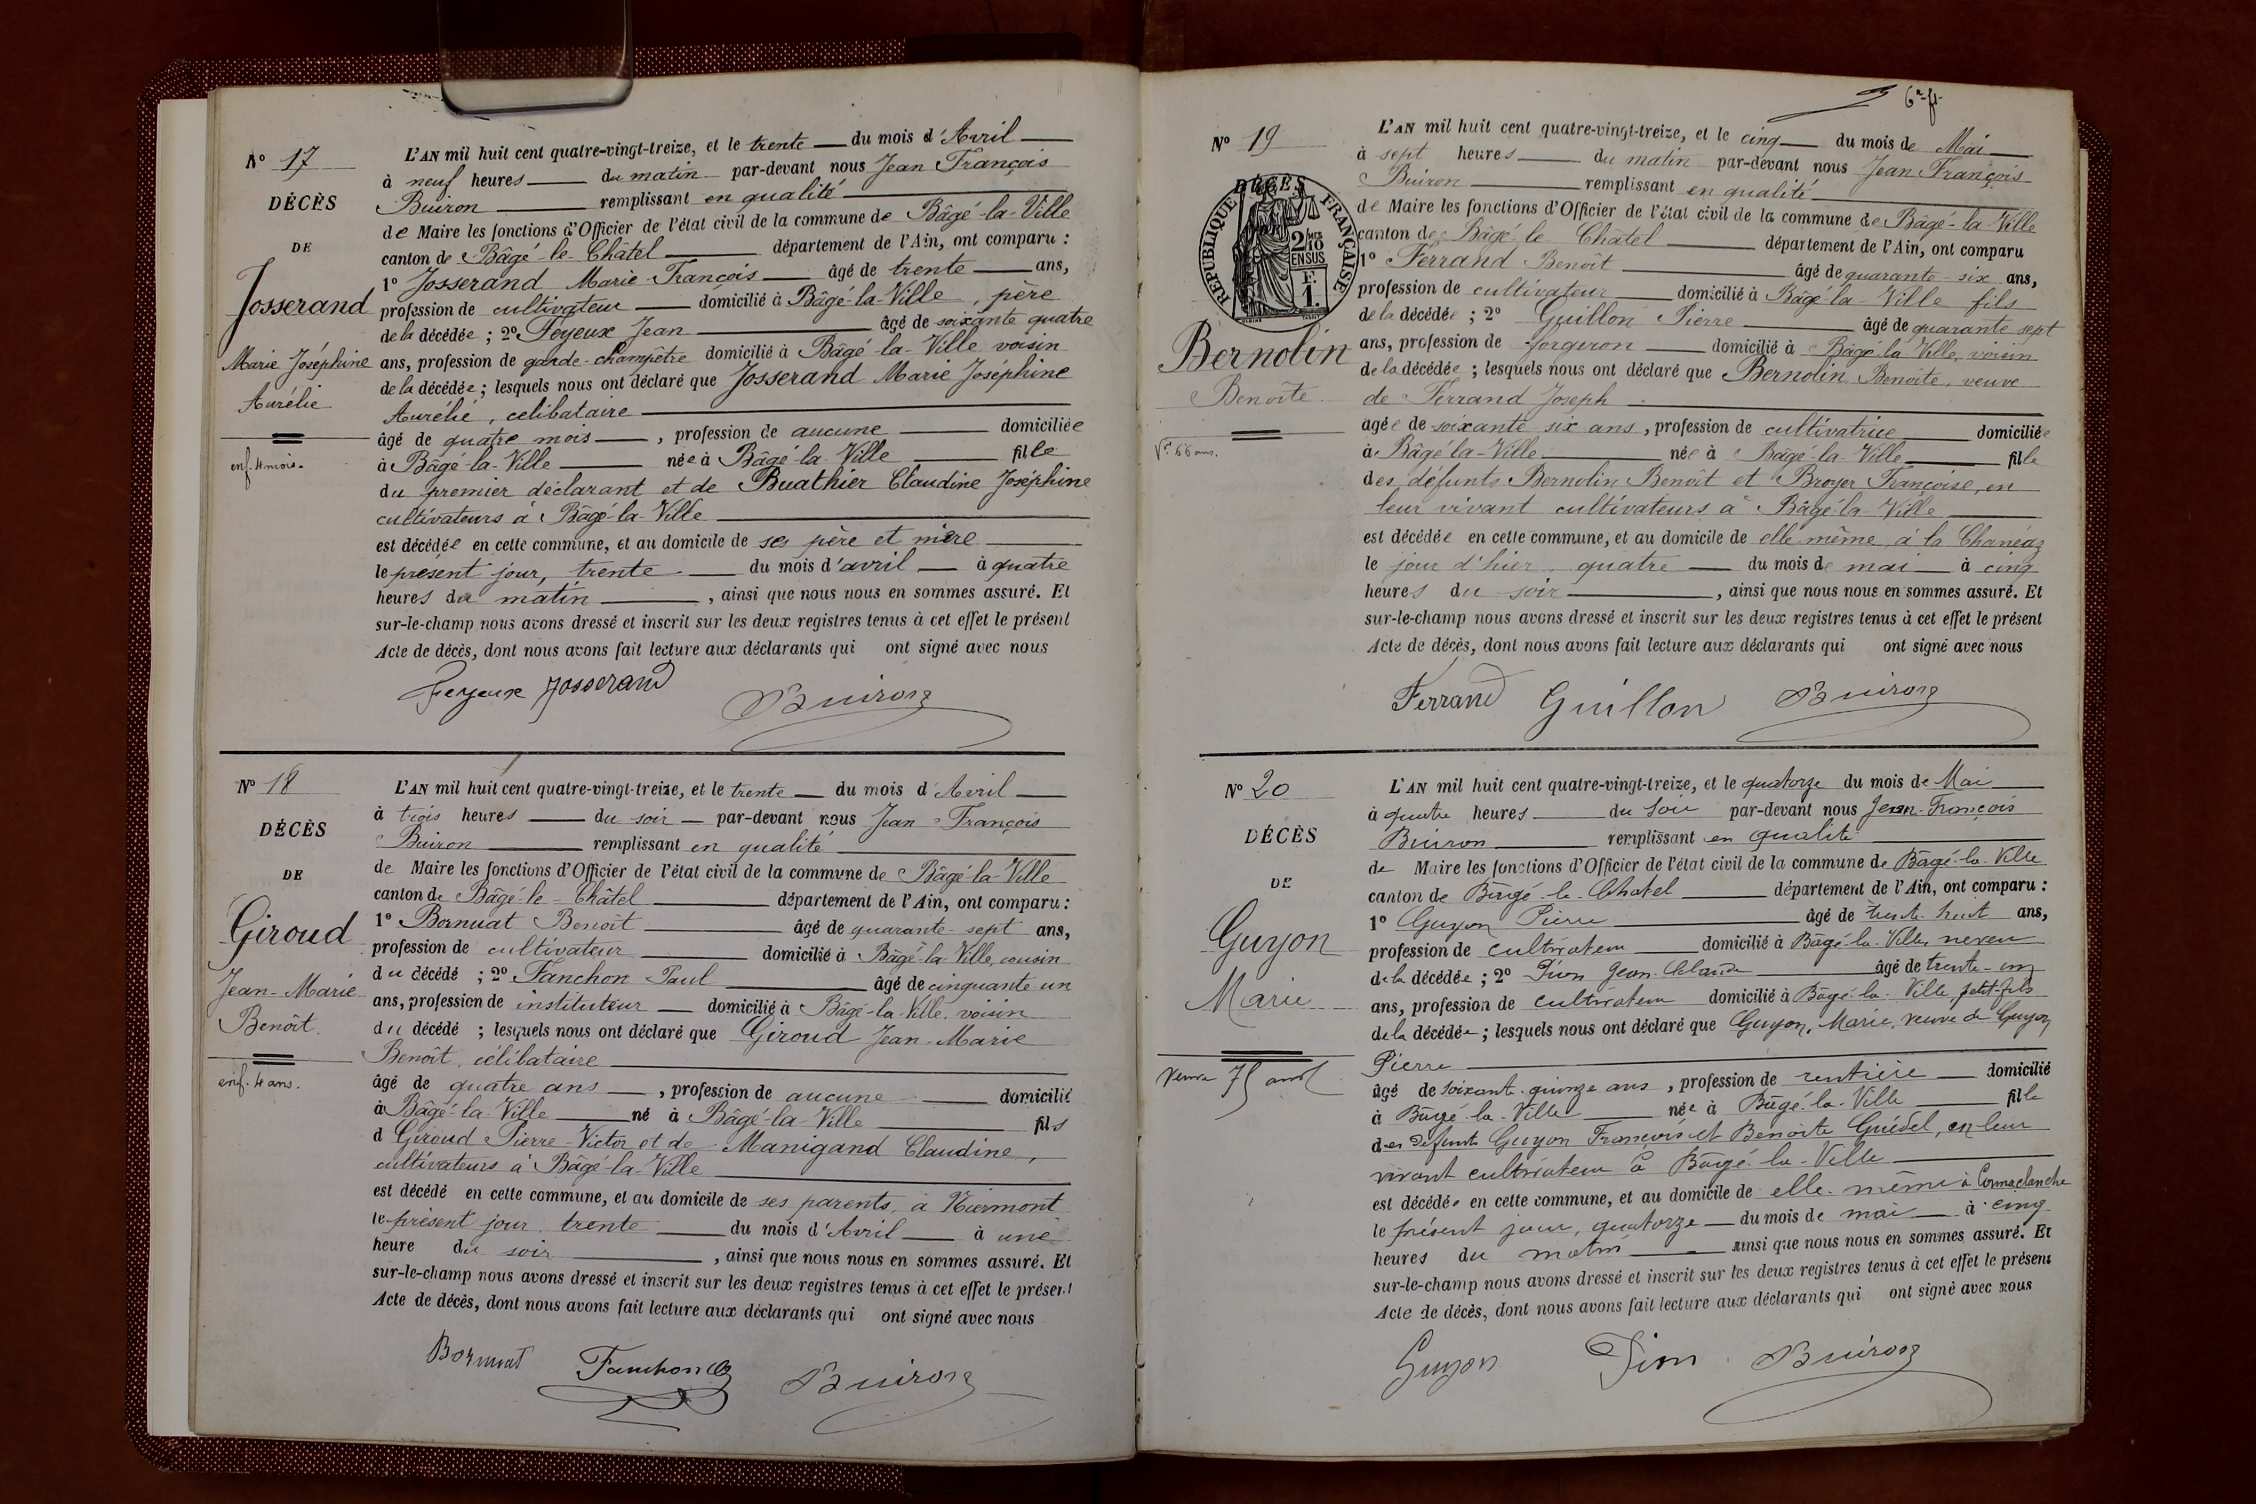 N° 17
DÉCÈS
DE
Josserand
Marie Joséphine
Aurélie
enf. 4 mois.
L'AN mil huit cent quatre-vingt-treize, et le trente du mois d'Avril
à neuf heures du matin par-devant nous Jean François
Buiron remplissant en qualité
de Maire les fonctions d'Officier de l'état civil de la commune de Bâgé-la-Ville
canton de Bâgé-le-Châtel département de l'Ain, ont comparu :
1° Josserand Marie-François âgé de trente ans,
profession de cultivateur domicilié à Bâgé-la-Ville, père
de la décédée ; 2° Feyeux Jean âgé de soixante quatre
ans, profession de garde-champêtre domicilié à Bâgé-la-Ville voisin
de la décédée ; lesquels nous ont déclaré que Josserand Marie Joséphine
Aurélie, célibataire
âgé de quatre mois, profession de aucune domiciliée
à Bâgé-la-Ville née à Bâgé-la-Ville fille
du premier déclarant et de Buathier Claudine Joséphine
cultivateurs à Bâgé-la-Ville
est décédée en cette commune, et au domicile de ses père et mère
le présent jour, trente du mois d'avril à quatre
heures du matin, ainsi que nous nous en sommes assuré. Et
sur-le-champ nous avons dressé et inscrit sur les deux registres tenus à cet effet le présent
Acte de décès, dont nous avons fait lecture aux déclarants qui ont signé avec nous
Feyeux Josserand Buiron
N° 18
DÉCÈS
DE
Giroud
Jean-Marie
Benoît.
enf. 4 ans.
L'AN mil huit cent quatre-vingt-treize, et le trente du mois d'Avril
à trois heures du soir par-devant nous Jean-François
Buiron remplissant en qualité
de Maire les fonctions d'Officier de l'état civil de la commune de Bâgé-la-Ville
canton de Bâgé-le-Châtel département de l'Ain, ont comparu :
1° Bornuat Benoît âgé de quarante-sept ans,
profession de cultivateur domicilié à Bâgé-la-Ville, cousin
du décédé ; 2° Fanchon Paul âgé de cinquante un
ans, profession de instituteur domicilié à Bâgé-la-Ville, voisin
du décédé ; lesquels nous ont déclaré que Giroud Jean-Marie
Benoît, célibataire
âgé de quatre ans, profession de aucune domicilié
à Bâgé-la-Ville né à Bâgé-la-Ville fils
d Giroud Pierre-Victor et de Manigand Claudine,
cultivateurs à Bâgé-la-Ville
est décédé en cette commune, et au domicile de ses parents, à Niermont
le présent jour trente du mois d'Avril à une
heure du soir, ainsi que nous nous en sommes assuré. Et
sur-le-champ nous avons dressé et inscrit sur les deux registres tenus à cet effet le présent
Acte de décès, dont nous avons fait lecture aux déclarants qui ont signé avec nous
Bornuat Fanchon Buiron
N° 19
DÉCÈS
RÉPUBLIQUE FRANÇAISE
2/10 EN SUS
F. 1.
Bernolin
Benoîte.
Vve 66 ans.
L'AN mil huit cent quatre-vingt-treize, et le cinq du mois de Mai
à sept heures du matin par-devant nous Jean François
Buiron remplissant en qualité
de Maire les fonctions d'Officier de l'état civil de la commune de Bâgé-la-Ville
canton de Bâgé-le-Châtel département de l'Ain, ont comparu
1° Ferrand Benoît âgé de quarante-six ans,
profession de cultivateur domicilié à Bâgé-la-Ville fils
de la décédée ; 2° Guillon Pierre âgé de quarante sept
ans, profession de forgeron domicilié à Bâgé-la-Ville, voisin
de la décédée ; lesquels nous ont déclaré que Bernolin Benoîte, veuve
de Ferrand Joseph
agée de soixante six ans, profession de cultivatrice domiciliée
à Bâgé-la-Ville née à Bâgé-la-Ville fille
des défunts Bernolin Benoît et Broyer Françoise, en
leur vivant cultivateurs à Bâgé-la-Ville
est décédée en cette commune, et au domicile de elle-même, à la Chanéaz
le jour d'hier quatre du mois de mai à cinq
heures du soir, ainsi que nous nous en sommes assuré. Et
sur-le-champ nous avons dressé et inscrit sur les deux registres tenus à cet effet le présent
Acte de décès, dont nous avons fait lecture aux déclarants qui ont signé avec nous
Ferrand Guillon Buiron
N° 20
DÉCÈS
DE
Guyon
Marie
Veuve 75 ans
L'AN mil huit cent quatre-vingt-treize, et le quatorze du mois de Mai
à quatre heures du soir par-devant nous Jean-François
Buiron remplissant en qualité
de Maire les fonctions d'Officier de l'état civil de la commune de Bâgé-la-Ville
canton de Bâgé-le-Chatel département de l'Ain, ont comparu :
1° Guyon Pierre âgé de trente-huit ans,
profession de cultivateur domicilié à Bâgé-la-Ville, neveu
de la décédée ; 2° Pion Jean-Claude âgé de trente-un
ans, profession de cultivateur domicilié à Bâgé-la-Ville, petit-fils
de la décédée ; lesquels nous ont déclaré que Guyon, Marie, veuve de Guyon
Pierre
âgé de soixante-quinze ans, profession de rentière domicilié
à Bâgé-la-Ville née à Bâgé-la-Ville fille
des défunts Guyon François et Benoîte Guédel, en leur
vivant cultivateurs à Bâgé-la-Ville
est décédée en cette commune, et au domicile de elle-même à Cormaclanche
le présent jour, quatorze du mois de mai à cinq
heures du matin ainsi que nous nous en sommes assuré. Et
sur-le-champ nous avons dressé et inscrit sur les deux registres tenus à cet effet le présent
Acte de décès, dont nous avons fait lecture aux déclarants qui ont signé avec nous
Guyon Pion Buiron